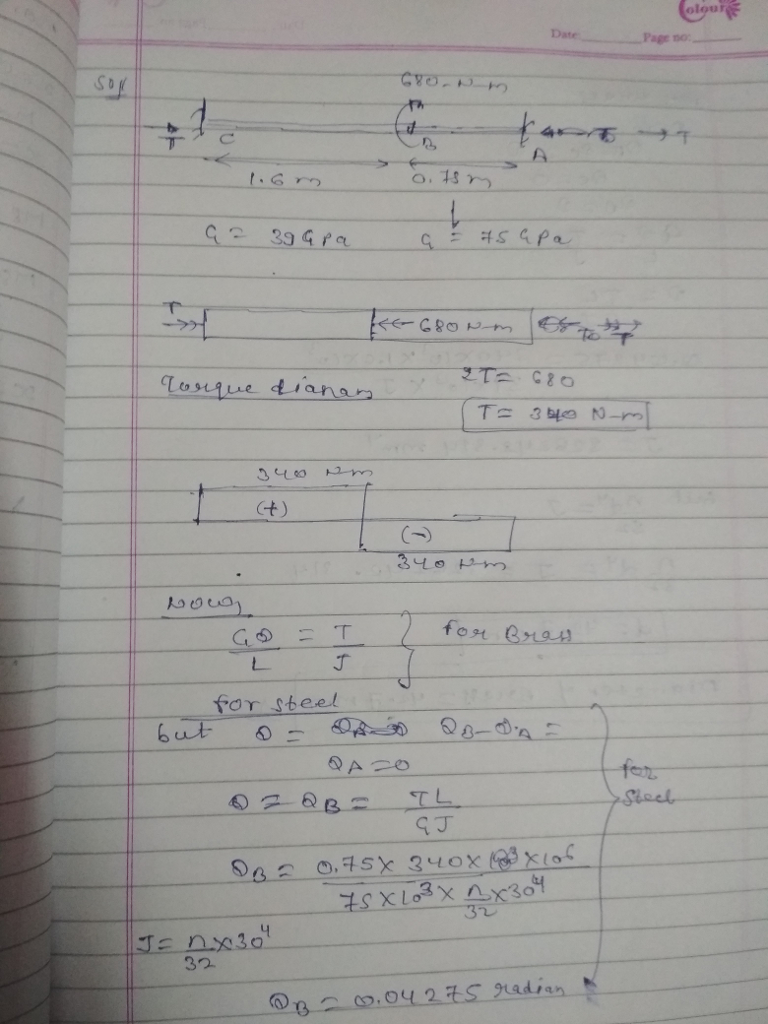 olour
Date: Page no:
Soln
680-N-m
T C B A T
1.6 m 0.75 m
G = 39 GPa G = 75 GPa
T 680 N-m To T
2T = 680
Torque diagram
T = 340 N-m
340 Nm
(+)
(-)
340 Nm
Now,
GΘ/L = T/J } for Brass
for steel
but Θ = ΘB - ΘA =
ΘA = 0
Θ = ΘB = TL/GJ
for steel
ΘB = 0.75 × 340 × 10³ × 10⁶ / 75 × 10³ × π/32 × 30⁴
J = π/32 × 30⁴
ΘB = 0.04275 radian